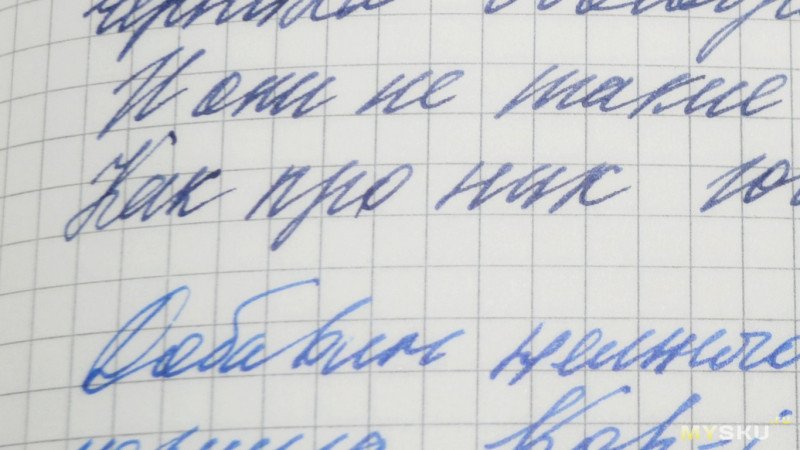 И они не такие
Как про них го
Добавим немного
чернила Кор-
MYSKU